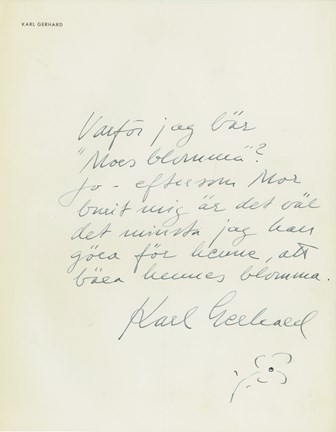 KARL GERHARD
Varför jag bär
"Mors blomma"?
Jo - eftersom Mor
burit mig är det väl
det minsta jag kan
göra för henne, att
bära hennes blomma.
Karl Gerhard